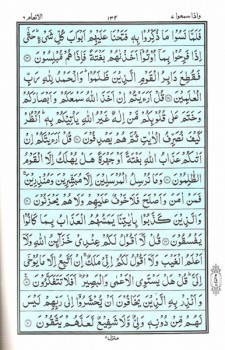 واذا سمعوا ٧
١٣٣
الانعام ٦
فَلَمَّا نَسُوْا مَا ذُكِّرُوْا بِهٖ فَتَحْنَا عَلَيْهِمْ اَبْوَابَ كُلِّ شَىْءٍ ؕ حَتّٰٓى
اِذَا فَرِحُوْا بِمَاۤ اُوْتُوْۤا اَخَذْنٰهُمْ بَغْتَةً فَاِذَا هُمْ مُّبْلِسُوْنَ
فَقُطِعَ دَابِرُ الْقَوْمِ الَّذِيْنَ ظَلَمُوْا ؕ وَالْحَمْدُ لِلّٰهِ رَبِّ
الْعٰلَمِيْنَ قُلْ اَرَءَيْتُمْ اِنْ اَخَذَ اللّٰهُ سَمْعَكُمْ وَاَبْصَارَكُمْ
وَخَتَمَ عَلٰى قُلُوْبِكُمْ مَّنْ اِلٰهٌ غَيْرُ اللّٰهِ يَاْتِيْكُمْ بِهٖ ؕ اُنْظُرْ
كَيْفَ نُصَرِّفُ الْاٰيٰتِ ثُمَّ هُمْ يَصْدِفُوْنَ قُلْ اَرَءَيْتَكُمْ اِنْ
اَتٰٮكُمْ عَذَابُ اللّٰهِ بَغْتَةً اَوْ جَهْرَةً هَلْ يُهْلَكُ اِلَّا الْقَوْمُ
الظّٰلِمُوْنَ وَمَا نُرْسِلُ الْمُرْسَلِيْنَ اِلَّا مُبَشِّرِيْنَ وَمُنْذِرِيْنَ ۚ
فَمَنْ اٰمَنَ وَاَصْلَحَ فَلَا خَوْفٌ عَلَيْهِمْ وَلَا هُمْ يَحْزَنُوْنَ
وَالَّذِيْنَ كَذَّبُوْا بِاٰيٰتِنَا يَمَسُّهُمُ الْعَذَابُ بِمَا كَانُوْا
يَفْسُقُوْنَ قُلْ لَّاۤ اَقُوْلُ لَكُمْ عِنْدِىْ خَزَآٮِٕنُ اللّٰهِ وَلَاۤ
اَعْلَمُ الْغَيْبَ وَلَاۤ اَقُوْلُ لَكُمْ اِنِّىْ مَلَكٌ ۚ اِنْ اَتَّبِعُ اِلَّا مَا يُوْحٰٓى
اِلَىَّ ؕ قُلْ هَلْ يَسْتَوِى الْاَعْمٰى وَالْبَصِيْرُ ؕ اَفَلَا تَتَفَكَّرُوْنَ
وَاَنْذِرْ بِهِ الَّذِيْنَ يَخَافُوْنَ اَنْ يُّحْشَرُوْۤا اِلٰى رَبِّهِمْ لَيْسَ
لَهُمْ مِّنْ دُوْنِهٖ وَلِىٌّ وَّلَا شَفِيْعٌ لَّعَلَّهُمْ يَتَّقُوْنَ
منزل ٢